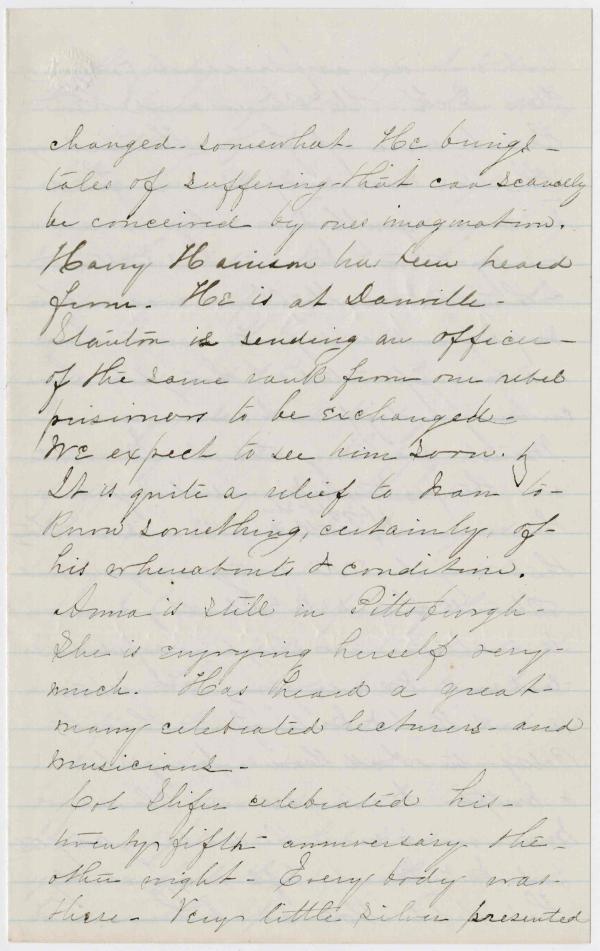 changed - somewhat - He brings -
tales of suffering that can scarcely
be conceived by ones imagination.
Harry Harrison has been heard
from - He is at Danville -
Stanton is sending an officer -
of the same rank from our rebel
prisioners to be exchanged -
We expect to see him soon.
It is quite a relief to to -
know something, certainly, of -
his whereabouts & condition.
Anna is still in Pittsburgh -
She is enjoying herself very -
much. Has heard a great -
many celebrated lecturers - and
musicians -
Col Slifer celebrated his -
twenty fifth anniversary the -
other night - Every body was -
there - Very little silver presented